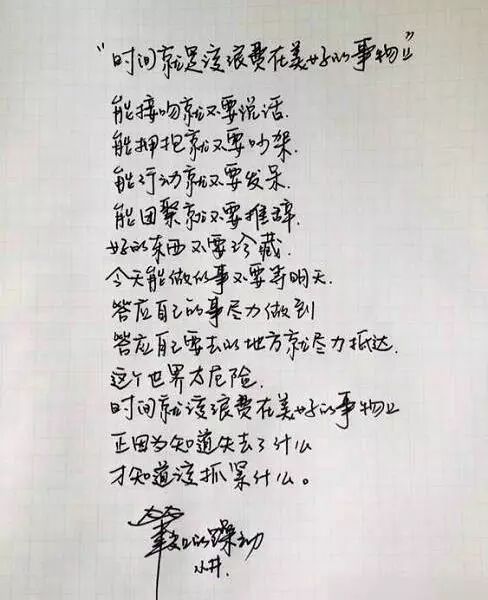 “时间就是该浪费在美好的事物上”
能接吻就不要说话.
能拥抱就不要吵架.
能行动就不要发呆.
能团聚就不要推辞.
好的东西不要珍藏.
今天能做的事不要等明天.
答应自己的事尽力做到
答应自己要去的地方就尽力抵达.
这个世界太危险.
时间就该浪费在美好的事物上
正因为知道失去了什么
才知道该抓紧什么。
的躁动
小井.